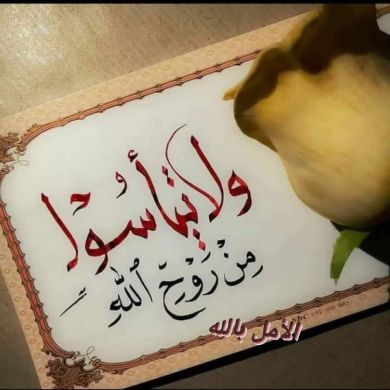 ولا تيأسوا
مِنْ رَوْحِ اللَّهِ
الأمل بالله